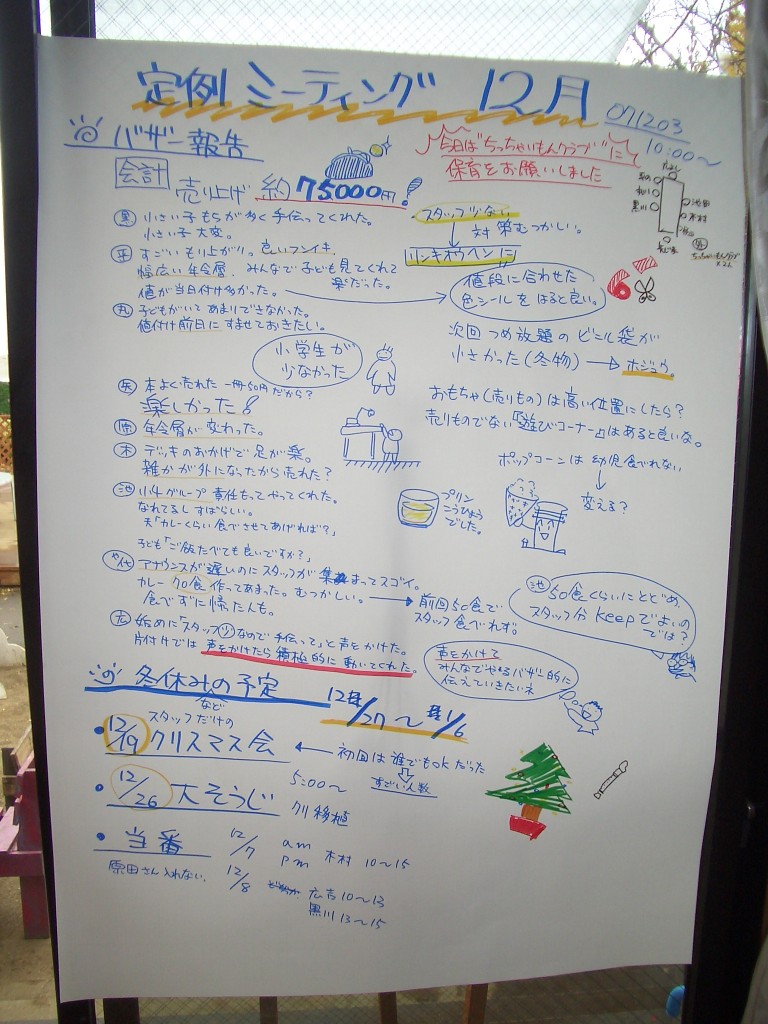 定例ミーティング 12月
071203
10:00〜
バザー報告
今日は"ちっちゃいもんクラブ"に
保育をお願いしました
会計 売り上げ 約75000円!
黒 小さい子もちが多く手伝ってくれた。
小さい子大変。
平 すごいもり上がり。良いフンイキ。
幅広い年令層、みんなで子ども見てくれて
楽だった。
値が当日付け多かった。
丸 子どもがいてあまりできなかった。
値付け前日にすませておきたい。
スタッフ少ない
対策むつかしい。
リンキオウヘンに
値段に合わせた
色シールをはると良い。
木村
黒川
小学生が
少なかった
次回つめ放題のビニル袋が
小さかった(冬物)→ホジュウ。
矢 本よく売れた 一冊50円だから?
楽しかった!
年令層が変わった。
木 デッキのおかげで足が楽。
雑かが外になったから売れた?
おもちゃ(売りもの)は高い位置にしたら?
売りものでない「遊びコーナー」はあると良いな。
ポップコーンは幼児食べれない
変える?
プリン
こうひょう
でした。
池 小4グループ責任もってやってくれた。
なれてるしすばらしい。
夫「カレーくらい食べさせてあげれば?」
子ども「ご飯たべても良いですか?」
や代 アナウンスが遅いのにスタッフが集まってスゴイ。
カレー70食作ってあまった。むつかしい。→前回50食で
スタッフ食べれず。
食べずに帰たんも。
池 50食くらいにとどめ、
スタッフ分keepでよいの
では?
広 始めに"スタッフ少なので手伝って"と声をかけた。
片付けでは声をかけたら積極的に動いてくれた。
声をかけて
みんなでやるバザー的に
伝えていきたいネ
冬休みの予定 12/27〜1/6
など
スタッフだけの
・12/19 クリスマス会 ← 初回は誰でもokだった
すごい人数
・12/26 大そうじ 5:00〜
クリ移植
・当番 12/7 am
pm 木村 10〜15
原田さん入れない。 12/8 広吉10〜13
黒川13〜15